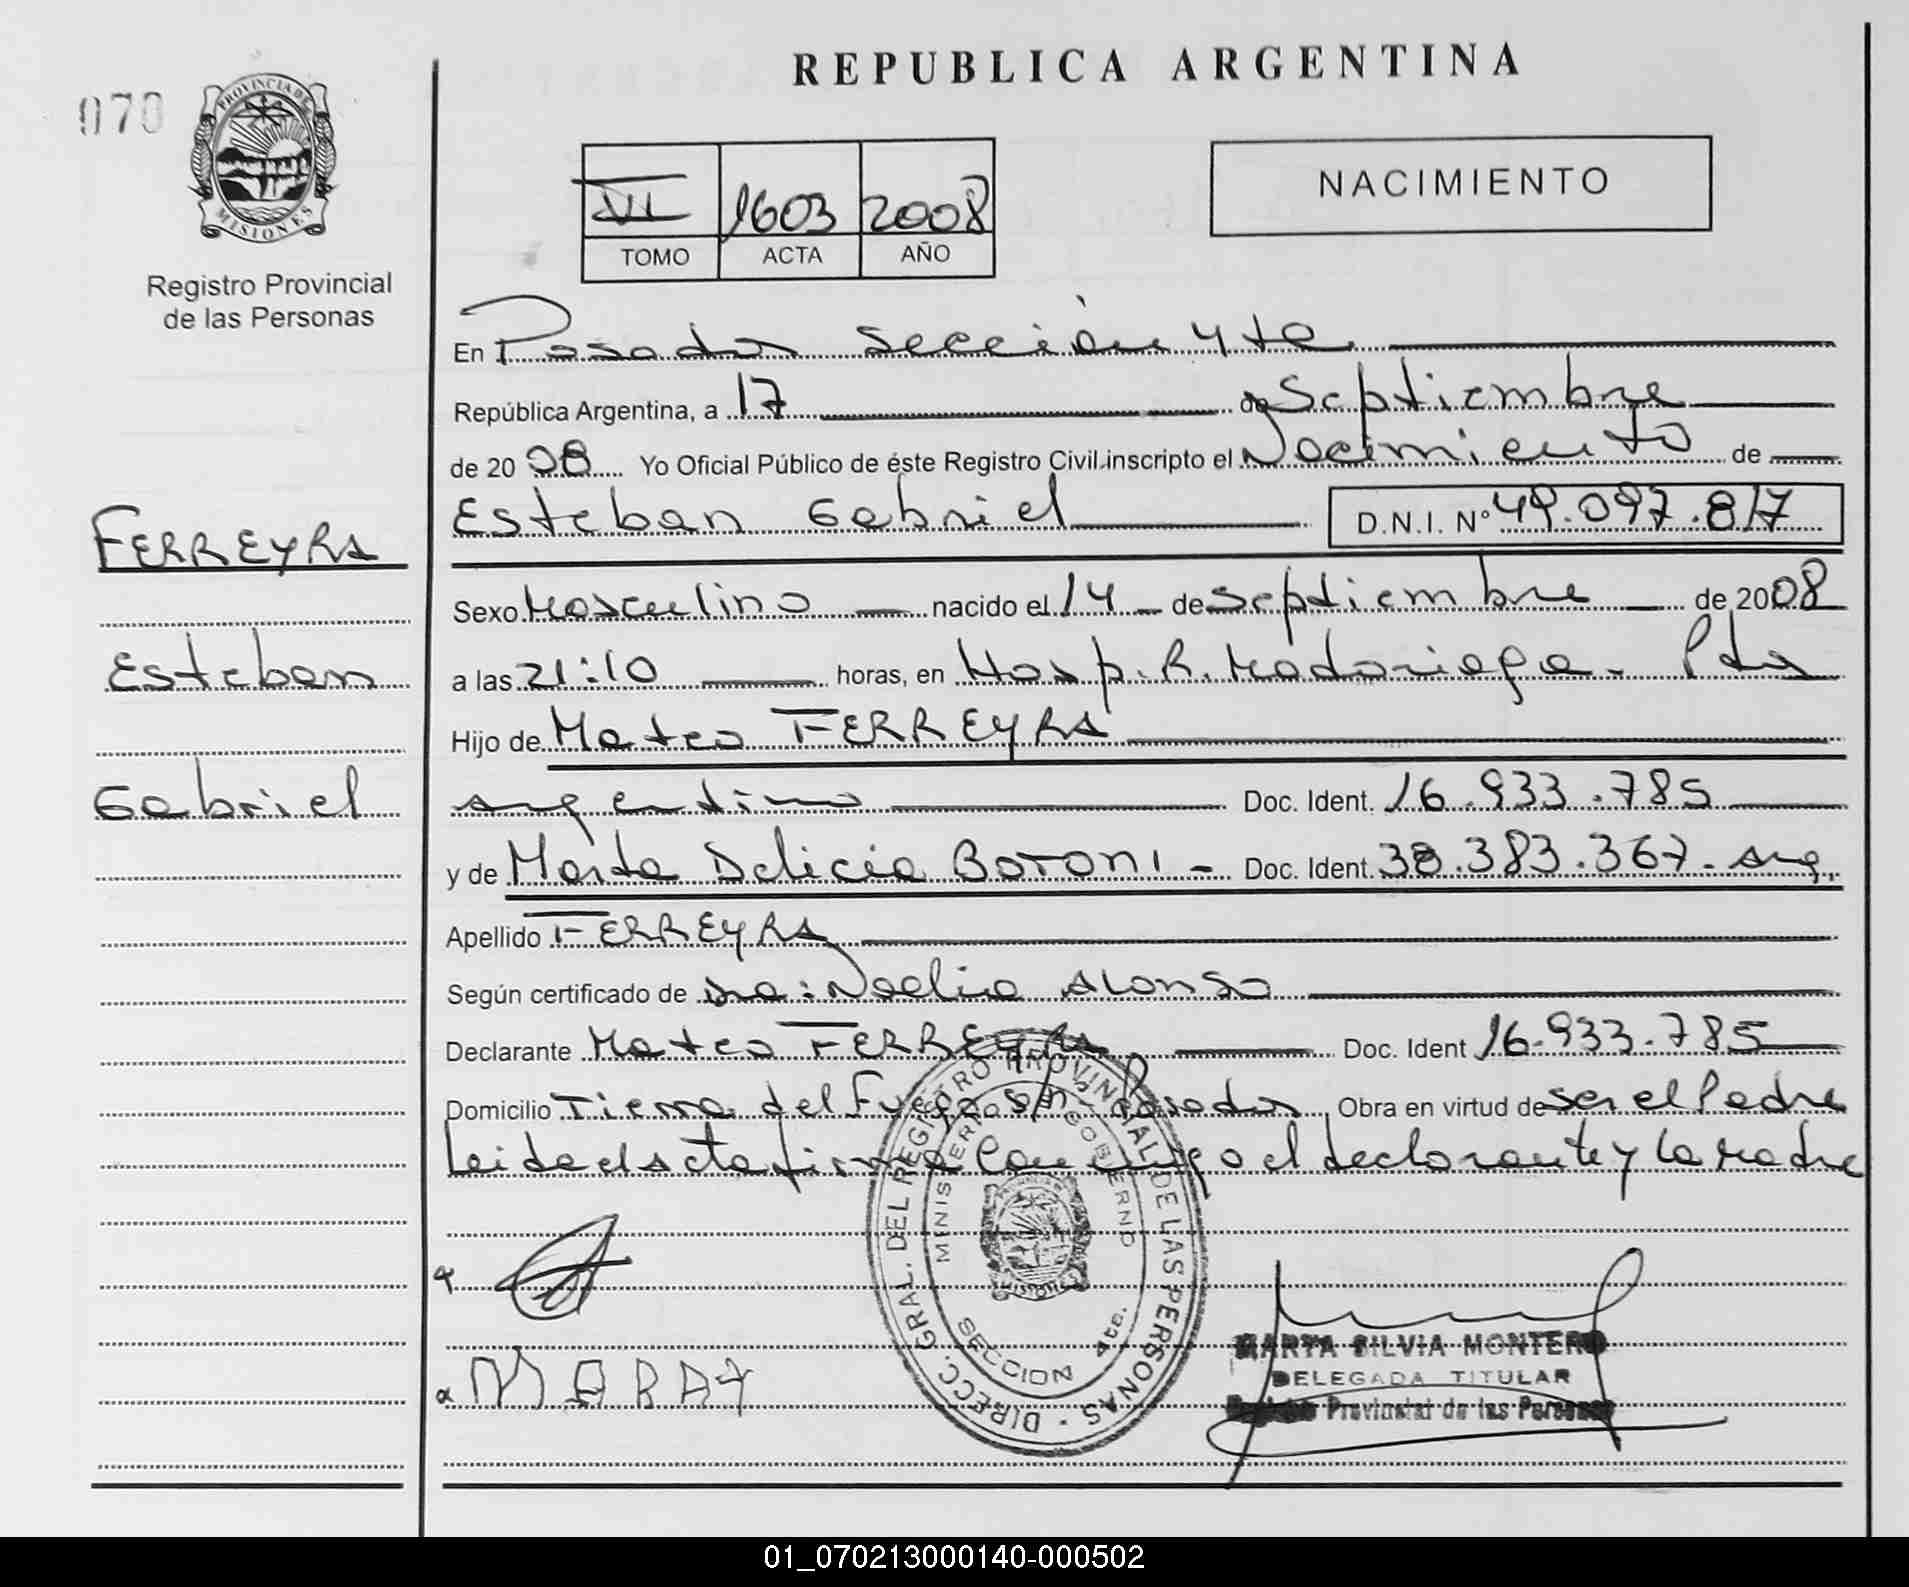 REPUBLICA ARGENTINA
070
PROVINCIA DE
MISIONES
Registro Provincial
de las Personas
NACIMIENTO
VI 1603 2008
TOMO ACTA AÑO
En Posadas Sección 4ta
República Argentina, a 17 de Septiembre
de 2008 Yo Oficial Público de éste Registro Civil inscripto el Nacimiento de
Esteban Gabriel D.N.I. Nº 49.097.817
FERREYRA
Esteban
Gabriel
Sexo Masculino nacido el 14 de Septiembre de 2008
a las 21:10 horas, en Hosp. R. Madariaga - Pdas
Hijo de Mateo FERREYRA
argentino Doc. Ident. 16.933.785
y de Delicia BORONI - Doc. Ident. 38.383.367 - arg.
Apellido FERREYRA
Según certificado de Dra: Noelia Alonso
Declarante Mateo FERREYRA Doc. Ident 16.933.785
Domicilio Tierra del Fuego s/n - Posadas Obra en virtud de ser el Padre
Leida el acta firma conmigo el declarante y la Madre
DIRECC. GRAL. DEL REGISTRO PROVINCIAL DE LAS PERSONAS
MINISTERIO GOBIERNO
SECCION 4ta.
MARTA SILVIA MONTERO
DELEGADA TITULAR
Registro Provincial de las Personas
01_070213000140-000502